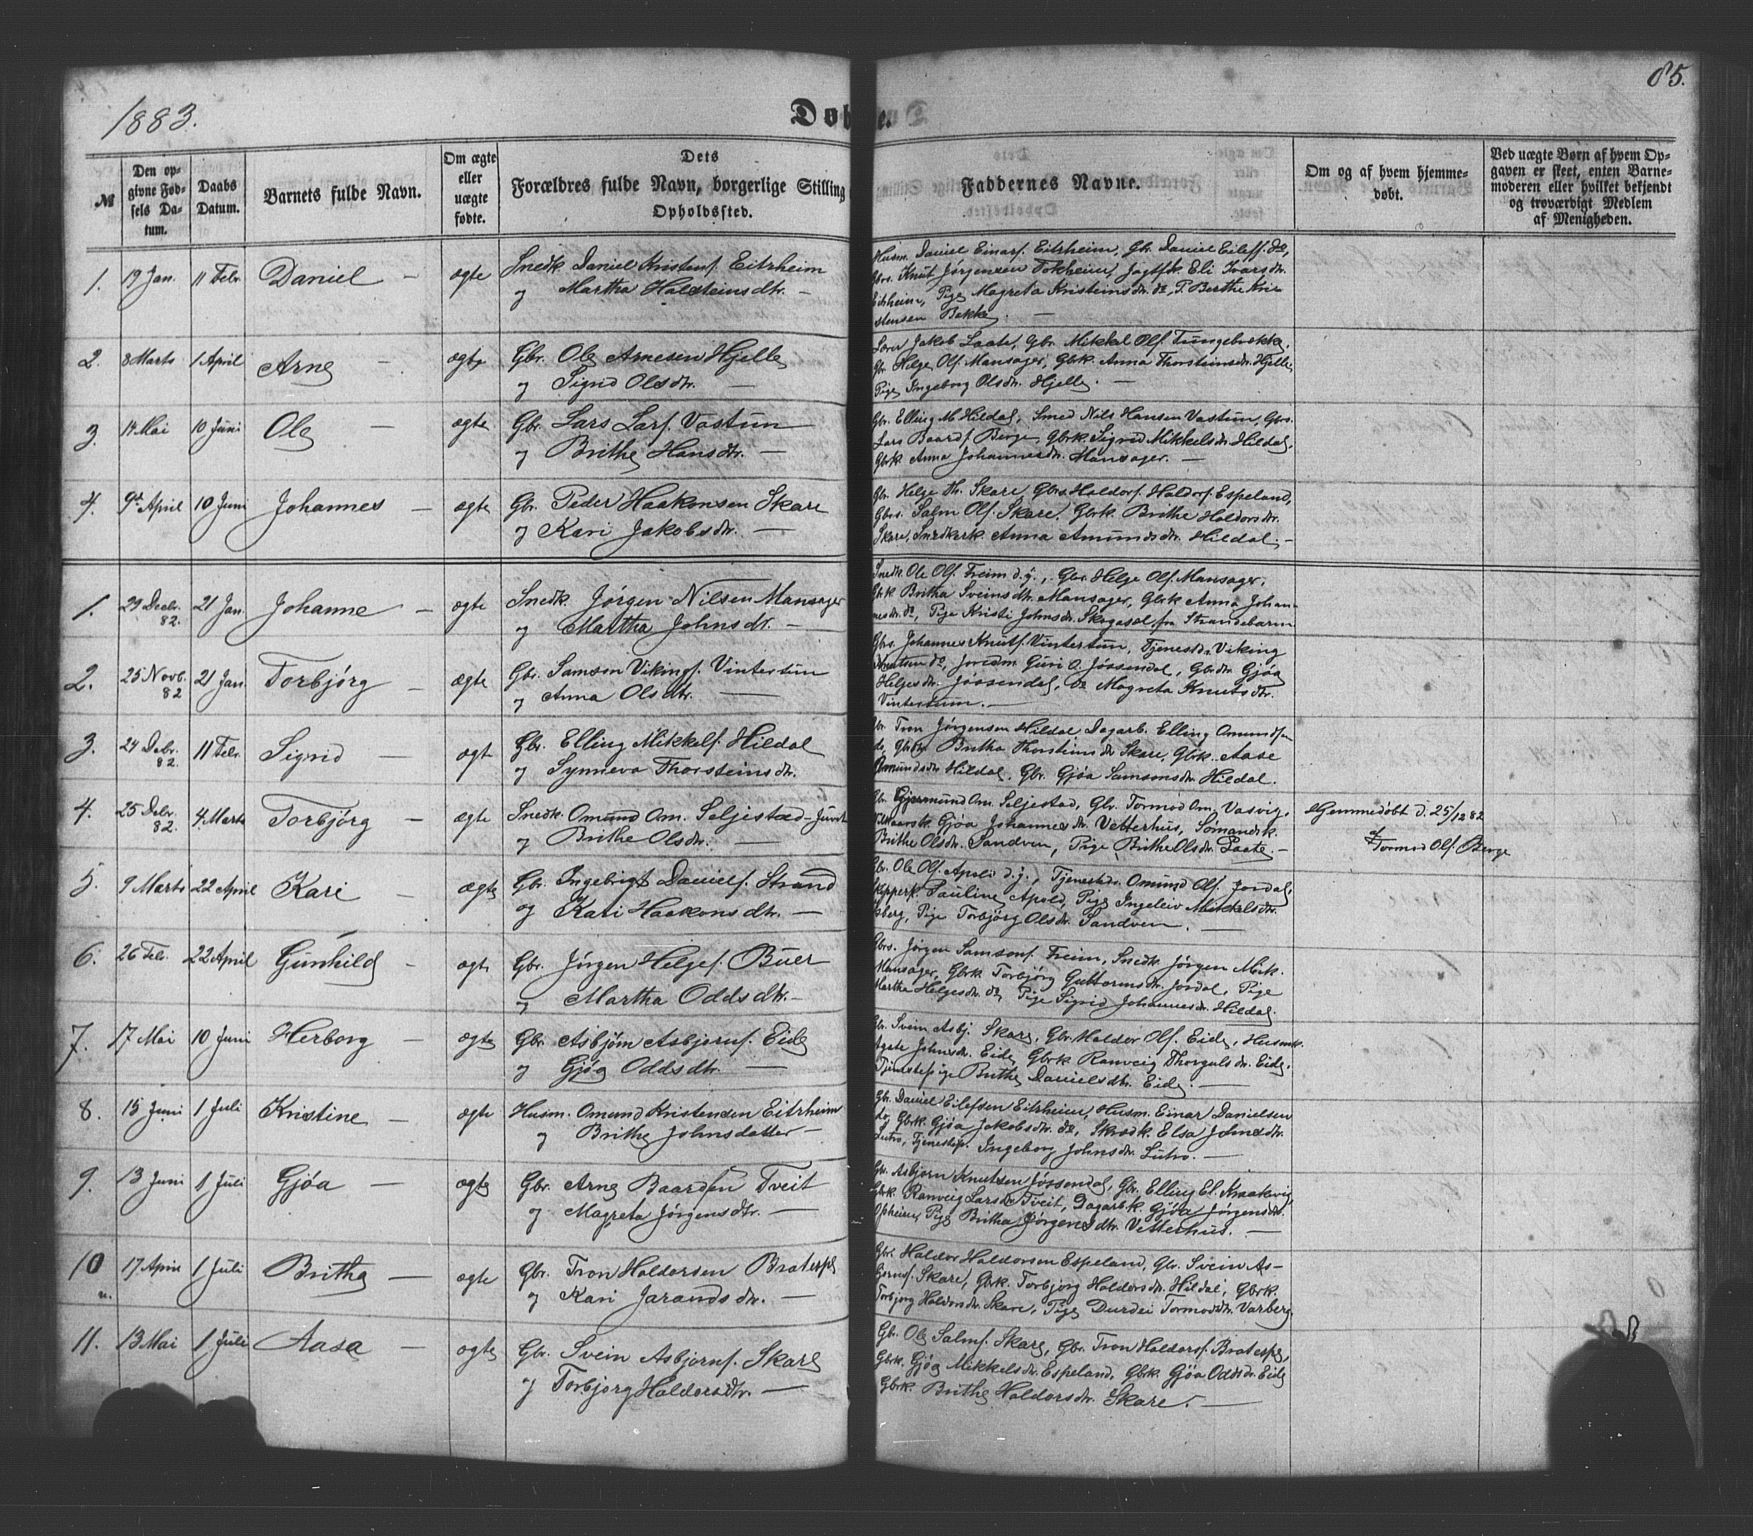 1883.
85.
Døbte
№
Den opgivne Fødsels Datum.
Daabs Datum.
Barnets fulde Navn.
Om ægte eller uægte fødte.
Dets Forældres fulde Navn, borgerlige Stilling Opholdssted.
Faddernes Navne.
Om og af hvem hjemmedøbt.
Ved uægte Børn af hvem Opgaven er skeet, enten Barnemoderen eller hvilket bekjendt og troværdigt Medlem af Menigheden.
1. 19 Jan. 11 Febr. Daniel — ægte Snedk. Daniel Kristens. Eitrheim
og Martha Halsteinsdtr. —
Husm. Daniel Einars. Eitrheim, Gbr. Daniel Eilefs. do,
Gbrs. Knut Jørgensen Tokheim, Jagtsk. Eli Ivarsdtr.
Eitrheim, Pige Magreta Kristensdtr. do, P. Berthe Kri-
stensen Bakke. —
2. 8 Marts 1 April Arne — ægte Gbr. Ole Arnesen Hjelle
og Sigrid Olsdtr. —
Lærer Jakob Laate, Gbr. Mikkel Ols.
Gbr. Helge Ols. Mansager, Gbrk. Anna Thorsteinsdtr. Hjelle,
Pige Ingeborg Olsdtr. Hjelle. —
3. 14 Mai 10 Juni Ole — ægte Gbr. Lars Lars. Vastun
og Brithe Hansdtr. —
Gbr. Elling M. Hildal, Smed Nils Hansen Vastun, Gbrs.
Lars Baards. Berge, Gbrk. Sigrid Mikkelsdtr. Hildal,
Gbrk. Anna Johannesdtr. Mansager. —
4. 9de April 10 Juni Johannes — ægte Gbr. Peder Haakonsen Skare
og Kari Jakobsdtr. —
Gbr. Helge Th. Skare, Gbrs. Haldor Haldors. Espeland,
Gbrs. Salm. Ols. Skare, Gbrk. Brithe Haldorsdtr.
Skare, Snedkerk. Anna Amundsdtr. Hildal. —
1. 29 Decbr. 82. 21 Jan. Johanne — ægte Snedk. Jørgen Nilsen Mansager
og Martha Johnsdtr. —
Snedk. Ole Ols. Freim d.y., Gbr. Helge Ols. Mansager,
Gbrk Britha Sveinsdtr. Mansager, Gbrk Anna Johan-
nesdtr. do, Pige Kristi Johnsdtr. Skogasel fra Strandebarm
2. 25 Novb. 82 21 Jan. Torbjørg — ægte Gbr. Samson Vikings. Vintertun
og Anna Olsdtr. —
Gbrs. Johannes Knuts. Vintertun, Tjenestdr. Viking
Knutsen do, Jordm. Guri O. Jøssendal, Gbrdtr. Gjøa
Helgesdtr. Jøssendal, do Magreta Knutsdtr.
Vintertun. —
3. 24 Debr. 82. 11 Febr. Sigrid — ægte Gbr. Elling Mikkels. Hildal
og Synneva Thorsteinsdtr.
Gbr. Tron Jørgensen Hildal Dagarb. Elling Omunds.
do, Gbrk Britha Thorsteinsdtr. Skare, Gbrk. Aase
Omundsdtr Hildal, Gbr. Gjøa Samsonsdtr. Hildal.
4. 25 Debr. 82. 4. Marts Torbjørg — ægte Snedk. Omund Om. Seljestad-
og Brithe Olsdtr. —
Gbr. Gjermund Om. Seljestad, Gbr. Tormod Om. Vasvig,
Gjøa Johannesdtr. Vetterhus, Sømandsk.
Brithe Olsdtr. Sandven, Pige Brithe Olsdtr. Laate. —
Hjemmedøbt d. 25/12 82
af Tormod Ols. Berge
5. 9 Marts 22 April Kari — ægte Gbr. Ingebrigt Daniels. Strand
og Kari Haakonsdtr. —
Gbr. Ole Ols. Apold d.y., Tjenestdr. Omund Ols. Jordal,
Skipperk. Pauline Apold, Pige Ingeleiv Mikkelsdtr.
Pige Torbjørg Olsdtr. Sandven. —
6. 26 Feb. 22 April Gunhild — ægte Gbr. Jørgen Helges. Buer
og Martha Oddsdtr. —
Gbrs. Jørgen Samsons. Freim, Snedk. Jørgen Mik.
Mansager, Gbrk Torbjørg Guttormsdtr. Jordal, Pige
Martha Helgesdtr. do, Pige Sigrid Johannesdtr. Hildal.
7. 17 Mai 10 Juni Herborg — ægte Gbr. Asbjørn Asbjørns. Eide
og Gjøa Oddsdtr. —
Gbr. Svein Asbj. Skare, Gbr. Haldor Ols. Eide, Husmk.
Agate Johnsdr. Eide, Gbrk Ranveig Thorgulsdtr. Eide,
Tjenestepige Brithe Danielsdtr. Eide. —
8. 15 Juni 1 Juli Kristine — ægte Husm. Omund Kristensen Eitrheim
og Brithe Johnsdatter —
Gbr. Daniel Eilefsen Eitrheim, Husm. Einar Danielsen
do, Gbrk. Gjøa Jakobsdtr. do, Skrædk. Elsa Johnsdtr.
Lutro, Tjenestep. Ingeborg Johnsdtr. Lutro. —
9. 13 Juni 1 Juli Gjøa — ægte Gbr. Arne Baardsen Tveit
og Magreta Jørgensdtr. —
Gbr. Asbjørn Knutsen Jøssendal, Gbr. Elling El. Kraakevig
Gbrk. Ranveig Larsdtr Tveit, Dagarbk. Gjøa Jørgensdtr.
Opheim, Pige Britha Jørgensdtr. Vetterhus. —
10 17 April 1 Juli Britha — ægte Gbr. Tron Haldorsen Bratespe
og Kari Jarandsdtr. —
Gbr. Haldor Haldorsen Espeland, Gbr. Svein As-
bjørns. Skare, Gbrk. Torbjørg Haldorsdtr. Hildal, Gbrk.
Torbjørg Haldorsdtr. Skare, Pige Durdei Tormodsdtr. Varberg.
11. 13 Mai 1 Juli Aasa — ægte Gbr. Svein Asbjørns. Skare
og Torbjørg Haldorsdtr. —
Gbr. Ole Salms. Skare, Gbr. Tron Haldors. Bratespe,
Gbrk. Gjøa Mikkelsdtr. Espeland, Gbrk. Gjøa Oddsdtr. Eide
Gbrk. Brithe Haldorsdtr. Skare. —